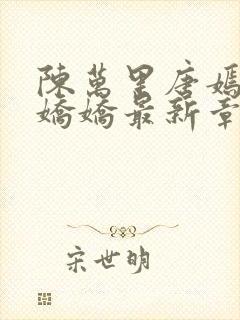 陳萬里唐嫣
嬌嬌最新章
宋世明